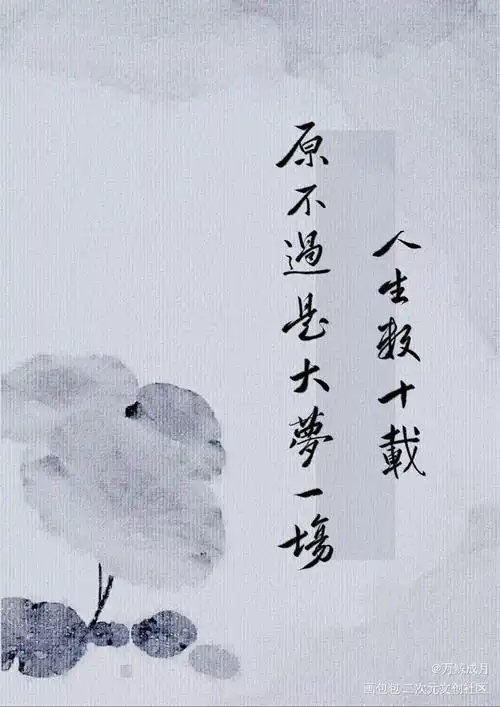 人生数十載
原不過是大夢一場
@万鲸成月
画包包 二次元文创社区